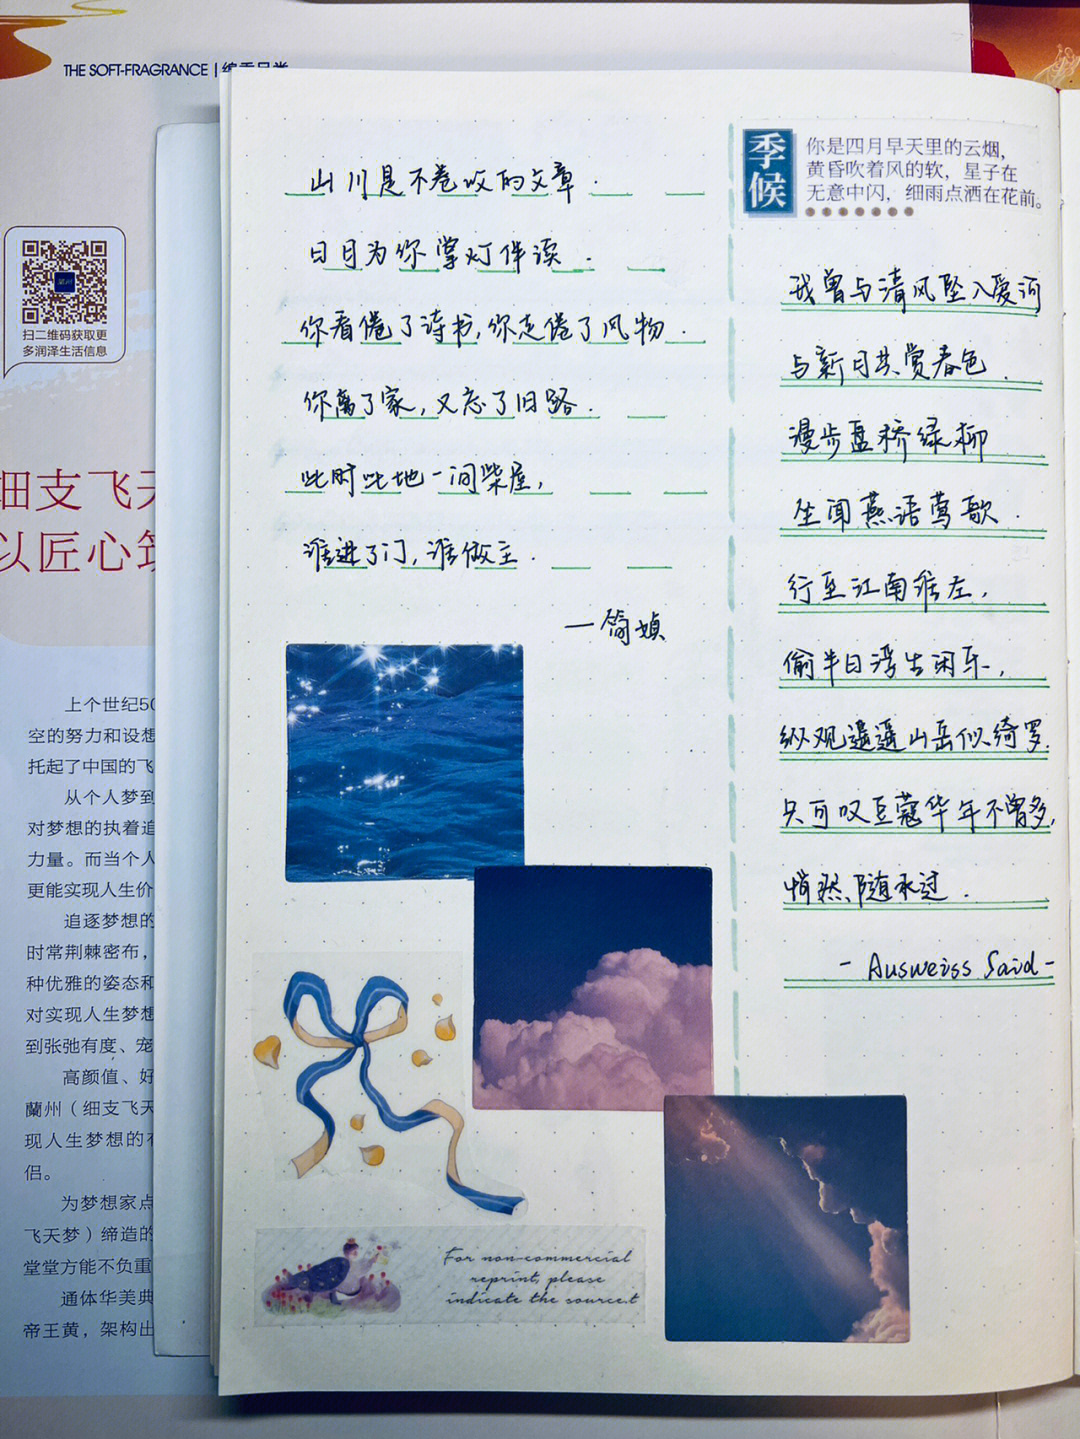 THE SOFT-FRAGRANCE |
扫二维码获取更
多润泽生活信息
细支飞天
以匠心筑
上个世纪50
空的努力和设想
托起了中国的飞
从个人梦到
对梦想的执着追
力量。而当个人
更能实现人生价
追逐梦想的
时常荆棘密布，
种优雅的姿态和
对实现人生梦想
到张弛有度、宠
高颜值、好
蘭州（细支飞天
现人生梦想的
侣。
为梦想家点
飞天梦）缔造的
堂堂方能不负重
通体华美典
帝王黄，架构出
山川是不卷收的文章.
日月为你掌灯伴读.
你看倦了诗书,你走倦了风物.
你离了家,又忘了旧路.
此时此地一间柴屋,
谁进了门,谁做主.
—简媜
For non-commercial
reprint, please
indicate the source.t
季候
你是四月早天里的云烟，
黄昏吹着风的软，星子在
无意中闪，细雨点洒在花前。
我曾与清风坠入爱河
与新日共赏春色.
漫步盘桥绿柳
坐闻燕语莺歌.
行至江南淮左,
偷半日湾生闲乐,
纵观遥遥山岳似绮罗.
只可叹豆蔻华年不曾多,
悄然随水过.
- Ausweiss Said -